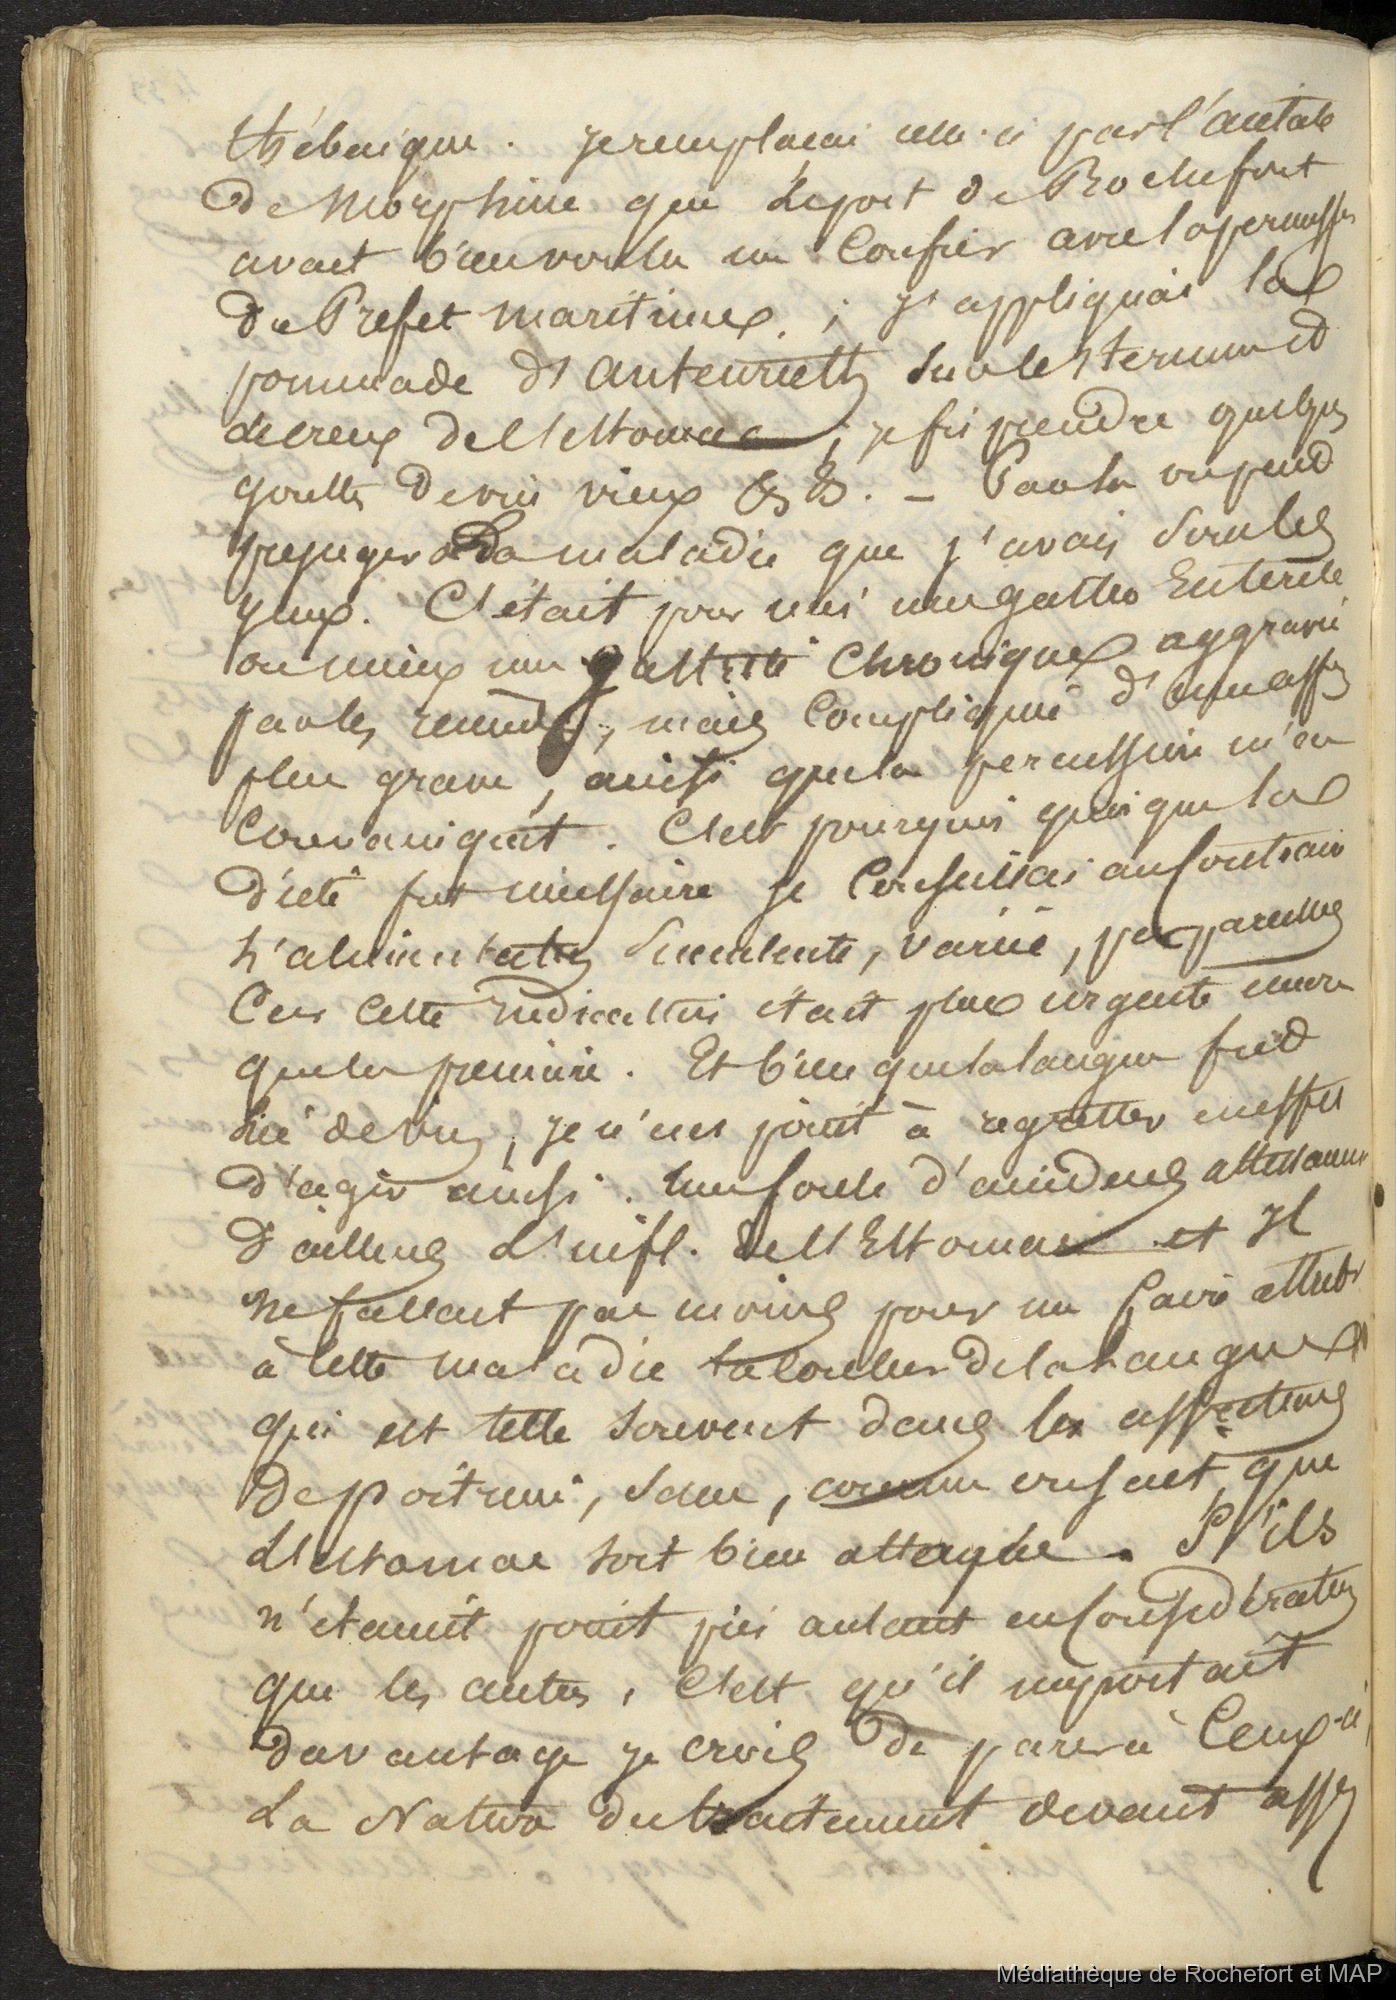 thébaique. Je remplacai celle-ci par l'acetate
de Morphine que le port de Rochefort
avait bien voulu me Confier avec la permission
du Prefet maritime ; j'appliquai la
pommade d'Autenrieth sur le sternum et
le creux de l'estomac ; je fis prendre quelques
gouttes de vin vieux &c &c. — Par la on peut
préjuger de la maladie que j'avais sous les
yeux. C'était pour moi une gastro Entérite
ou mieux une gastrite Chronique aggravée
par les remèdes, mais Compliquée d'une aff.on
plus grave, ainsi que la percussion m'en
Convainquit. C'est pourquoi quoique la
diète fut nécessaire je Conseillai au Contraire
l'alimentation succulente, variée, par parcelles
Car Cette Indication était plus urgente encore
que la première. Et bien que la langue fut
liée de vin, je n'eus point à regretter en effet
d'agir ainsi. Une foule d'accidens attestaient
d'ailleurs l'infl. de l'Estomac et Il
ne fallait pas moins pour me faire attribuer
à Cette maladie la couleur de la Langue
qui est telle souvent dans les affections
de poitrine, sans, comme on sait, que
L'estomac soit bien attaqué. S'ils
n'étaient point pris autant en Considération
que les autres, C'est qu'il importait
davantage je crois de parer à Ceux-ci
La Nature du traitement devant assez